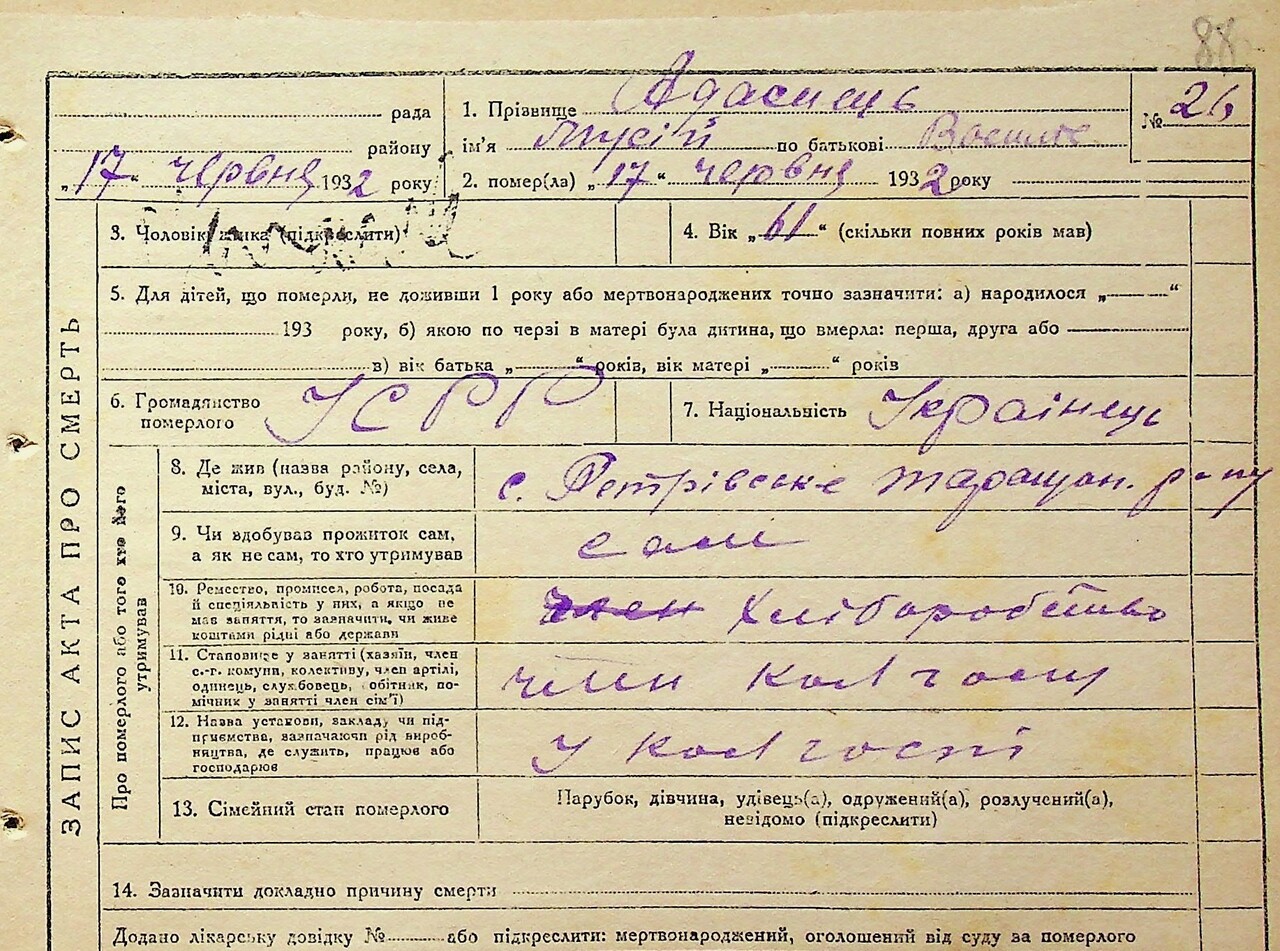 88
рада
1. Прізвище Адасинець
№ 26
району
ім'я Мусій по батькові
„17“ червня 1932 року
2. помер(ла) „17“ червня 1932 року
3. Чоловік, жінка (підкреслити)
4. Вік „61“ (скільки повних років мав)
5. Для дітей, що померли, не доживши 1 року або мертвонароджених точно зазначити: а) народилося „ “
193 року, б) якою по черзі в матері була дитина, що вмерла: перша, друга або
в) вік батька „ “ років, вік матері „ “ років
6. Громадянство
померлого
УСРР
7. Національність Українець
ЗАПИС АКТА ПРО СМЕРТЬ
Про померлого або того хто його
утримував
8. Де жив (назва району, села,
міста, вул., буд. №)
с. Петрівське Таращан. р-ну
9. Чи здобував прожиток сам,
а як не сам, то хто утримував
сам
10. Ремество, промисел, робота, посада
й спеціяльність у них, а якщо не
мав заняття, то зазначити, чи живе
коштами рідні або держави
член Хліборобство
11. Становище у занятті (хазяїн, член
с.-г. комуни, колективу, член артілі,
одинець, службовець, робітник, по-
мічник у занятті член сім'ї)
член колгоспу
12. Назва установи, закладу чи під-
приємства, зазначаючи рід вироб-
ництва, де служить, працює або
господарює
У колгоспі
13. Сімейний стан померлого
Парубок, дівчина, удівець(а), одружений(а), розлучений(а),
невідомо (підкреслити)
14. Зазначити докладно причину смерти
Додано лікарську довідку № або підкреслити: мертвонароджений, оголошений від суду за померлого